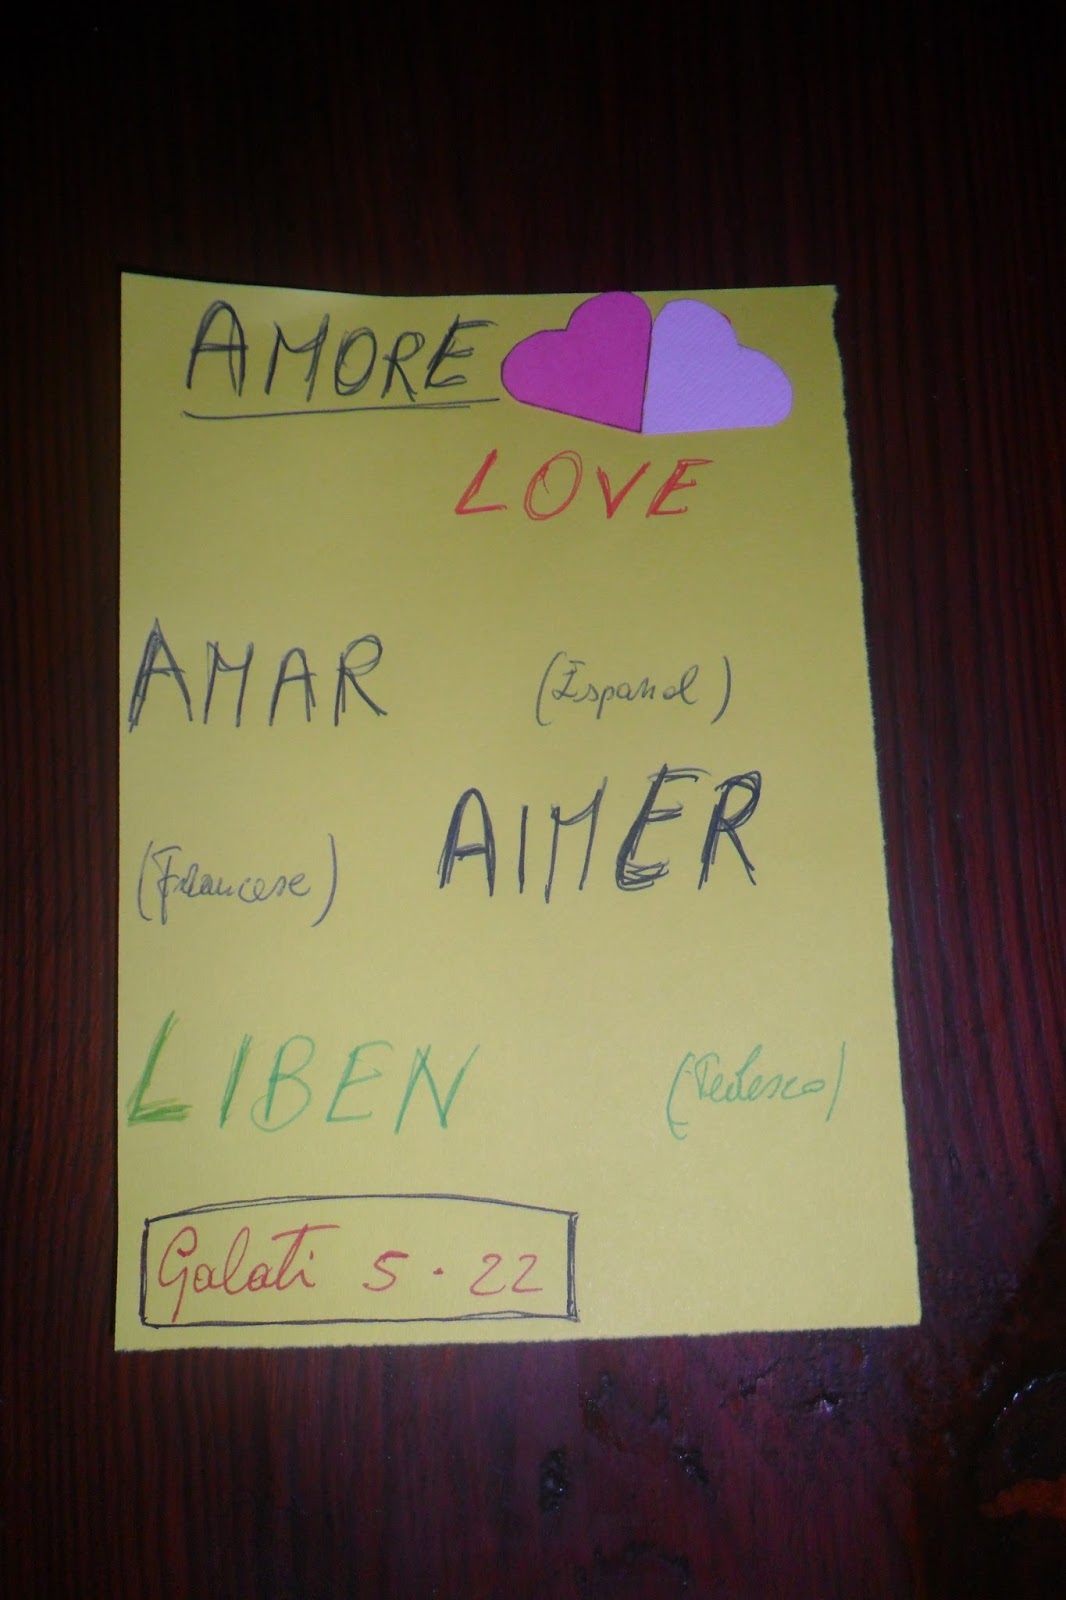 AMORE
LOVE
AMAR (Espanol)
(Francese) AIMER
LIBEN (Tedesco)
Galati 5.22